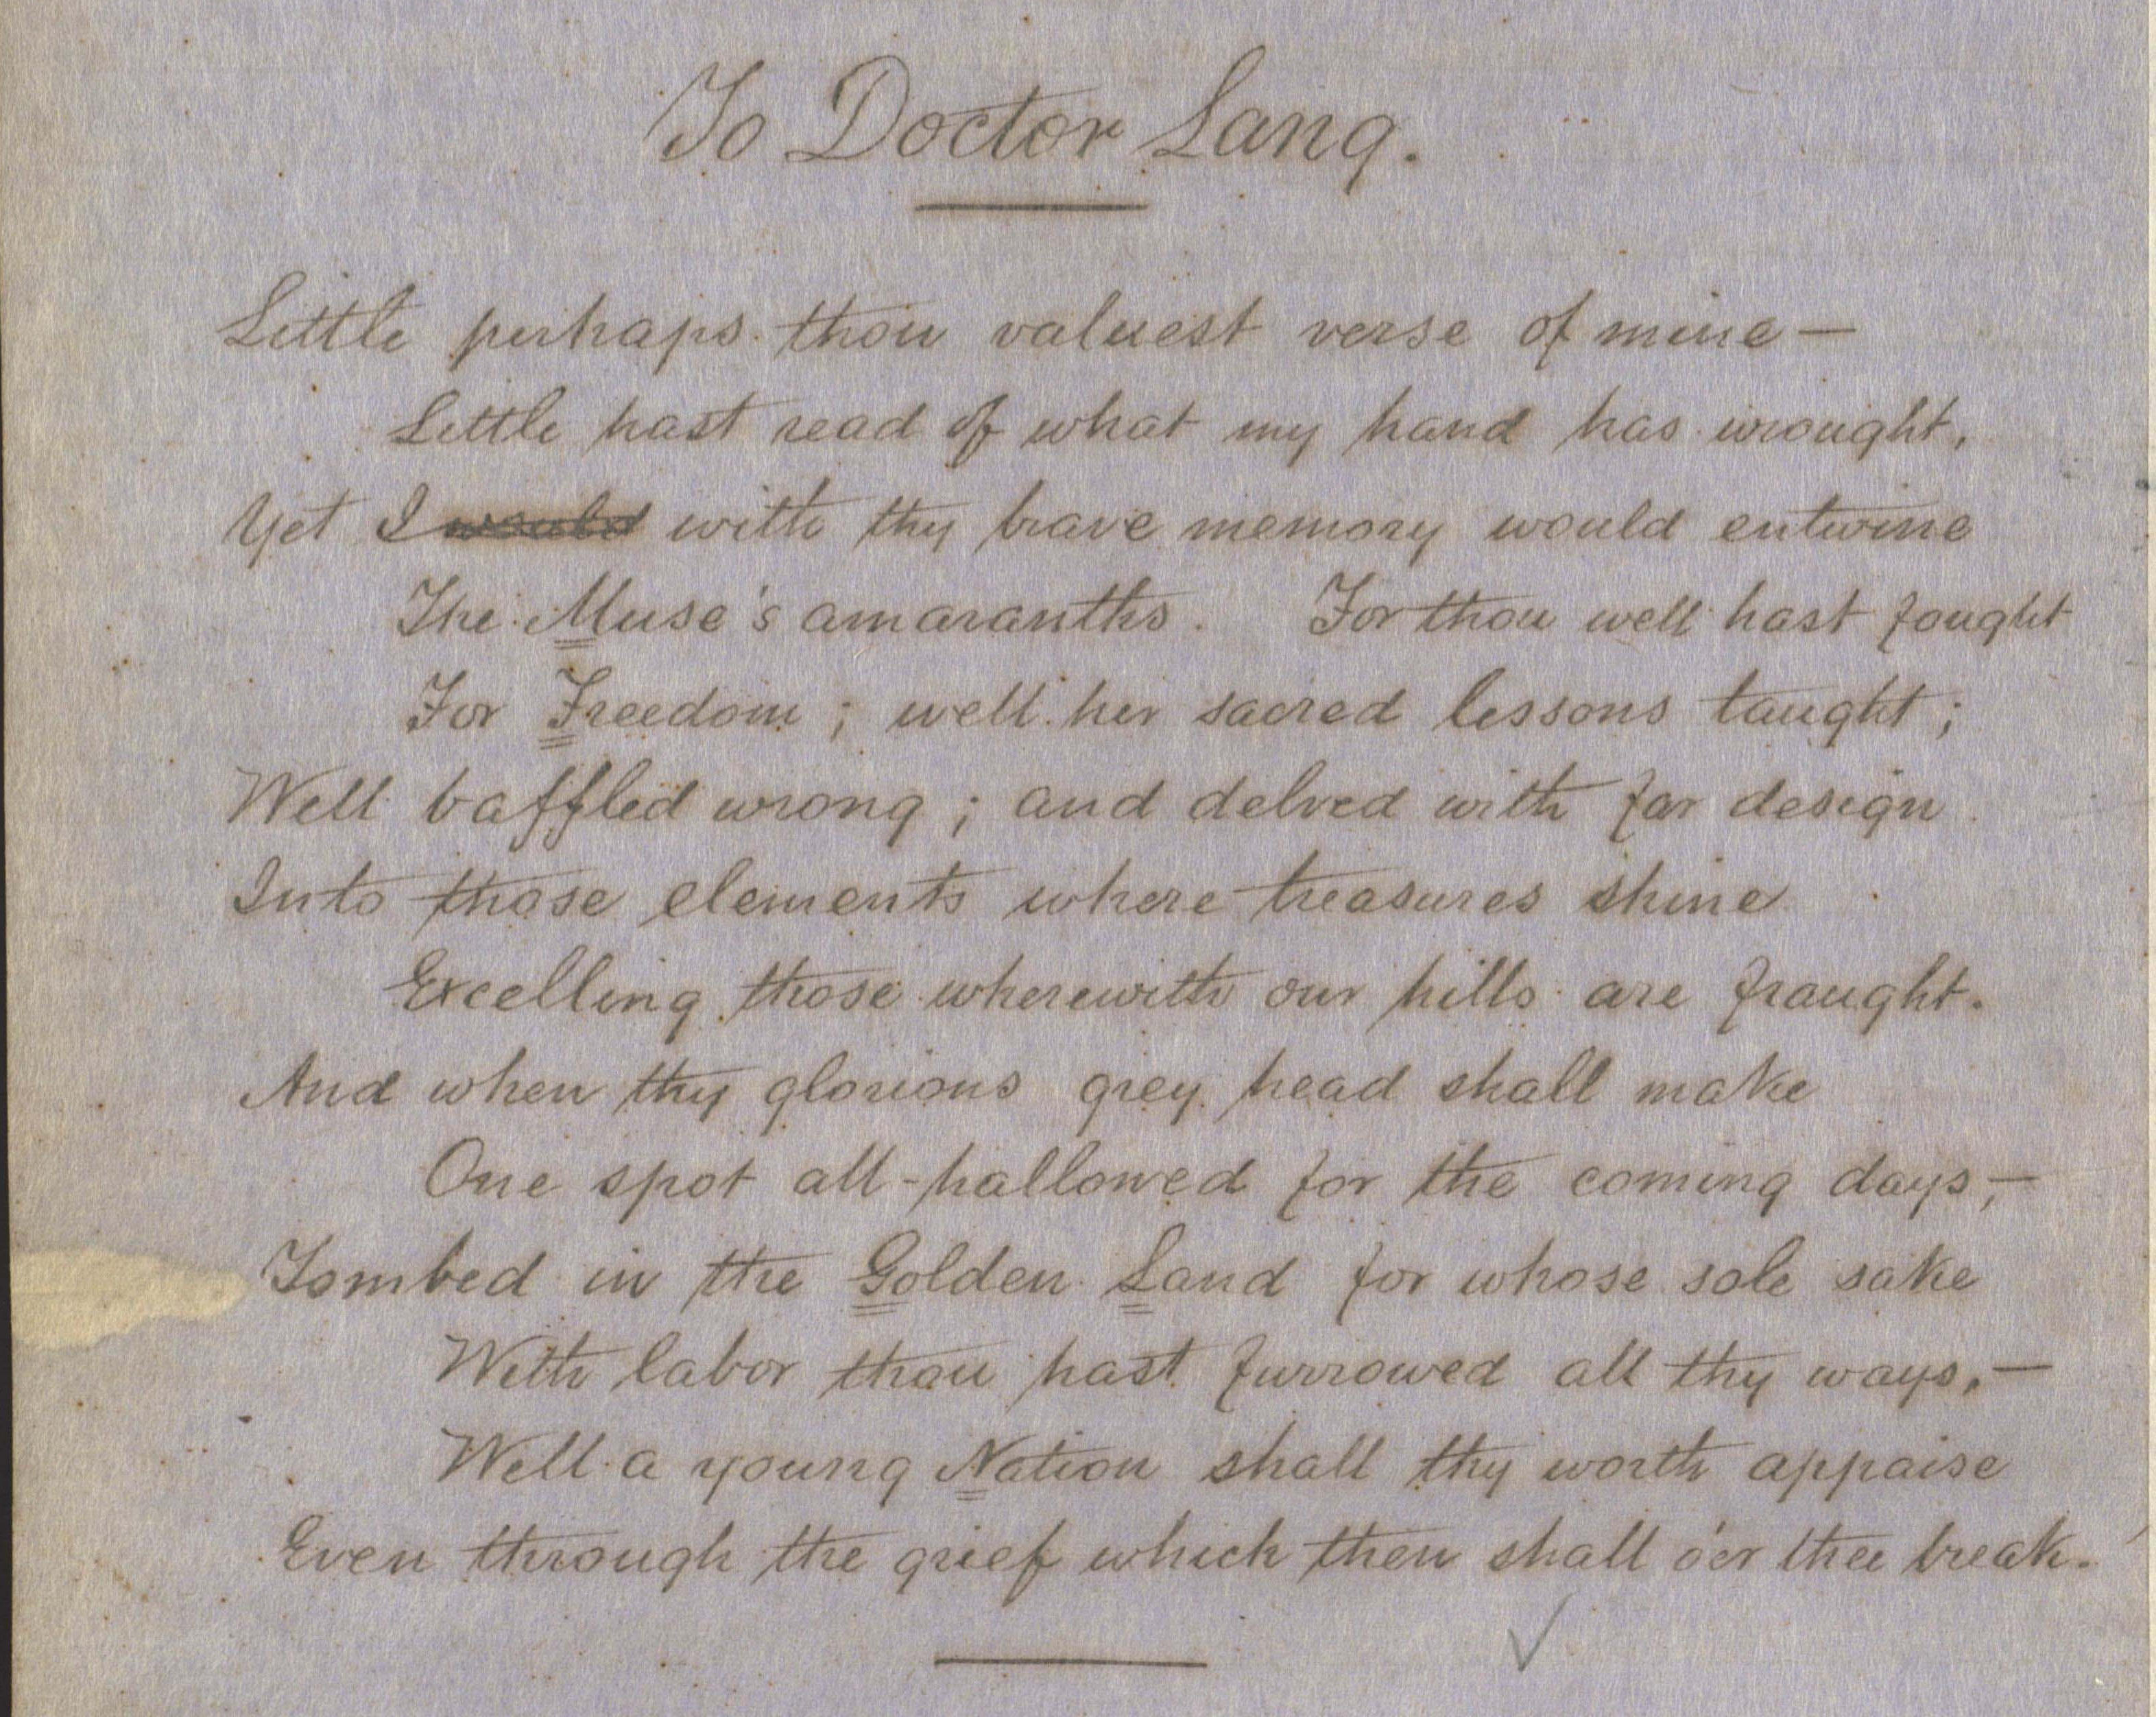 To Doctor Lang.
Little perhaps thou valuest verse of mine —
Little hast read of what my hand has wrought,
Yet I would with thy brave memory would entwine
The Muse's amaranths. For thou well hast fought
For Freedom; well her sacred lessons taught;
Well baffled wrong; and delved with far design
Into those elements where treasures shine
Excelling those wherewith our hills are fraught.
And when thy glorious grey head shall make
One spot all-hallowed for the coming days,—
Tombed in the Golden Land for whose sole sake
With labor thou hast furrowed all thy ways,—
Well a young Nation shall thy worth appaise
Even through the grief which then shall o'er thee break.